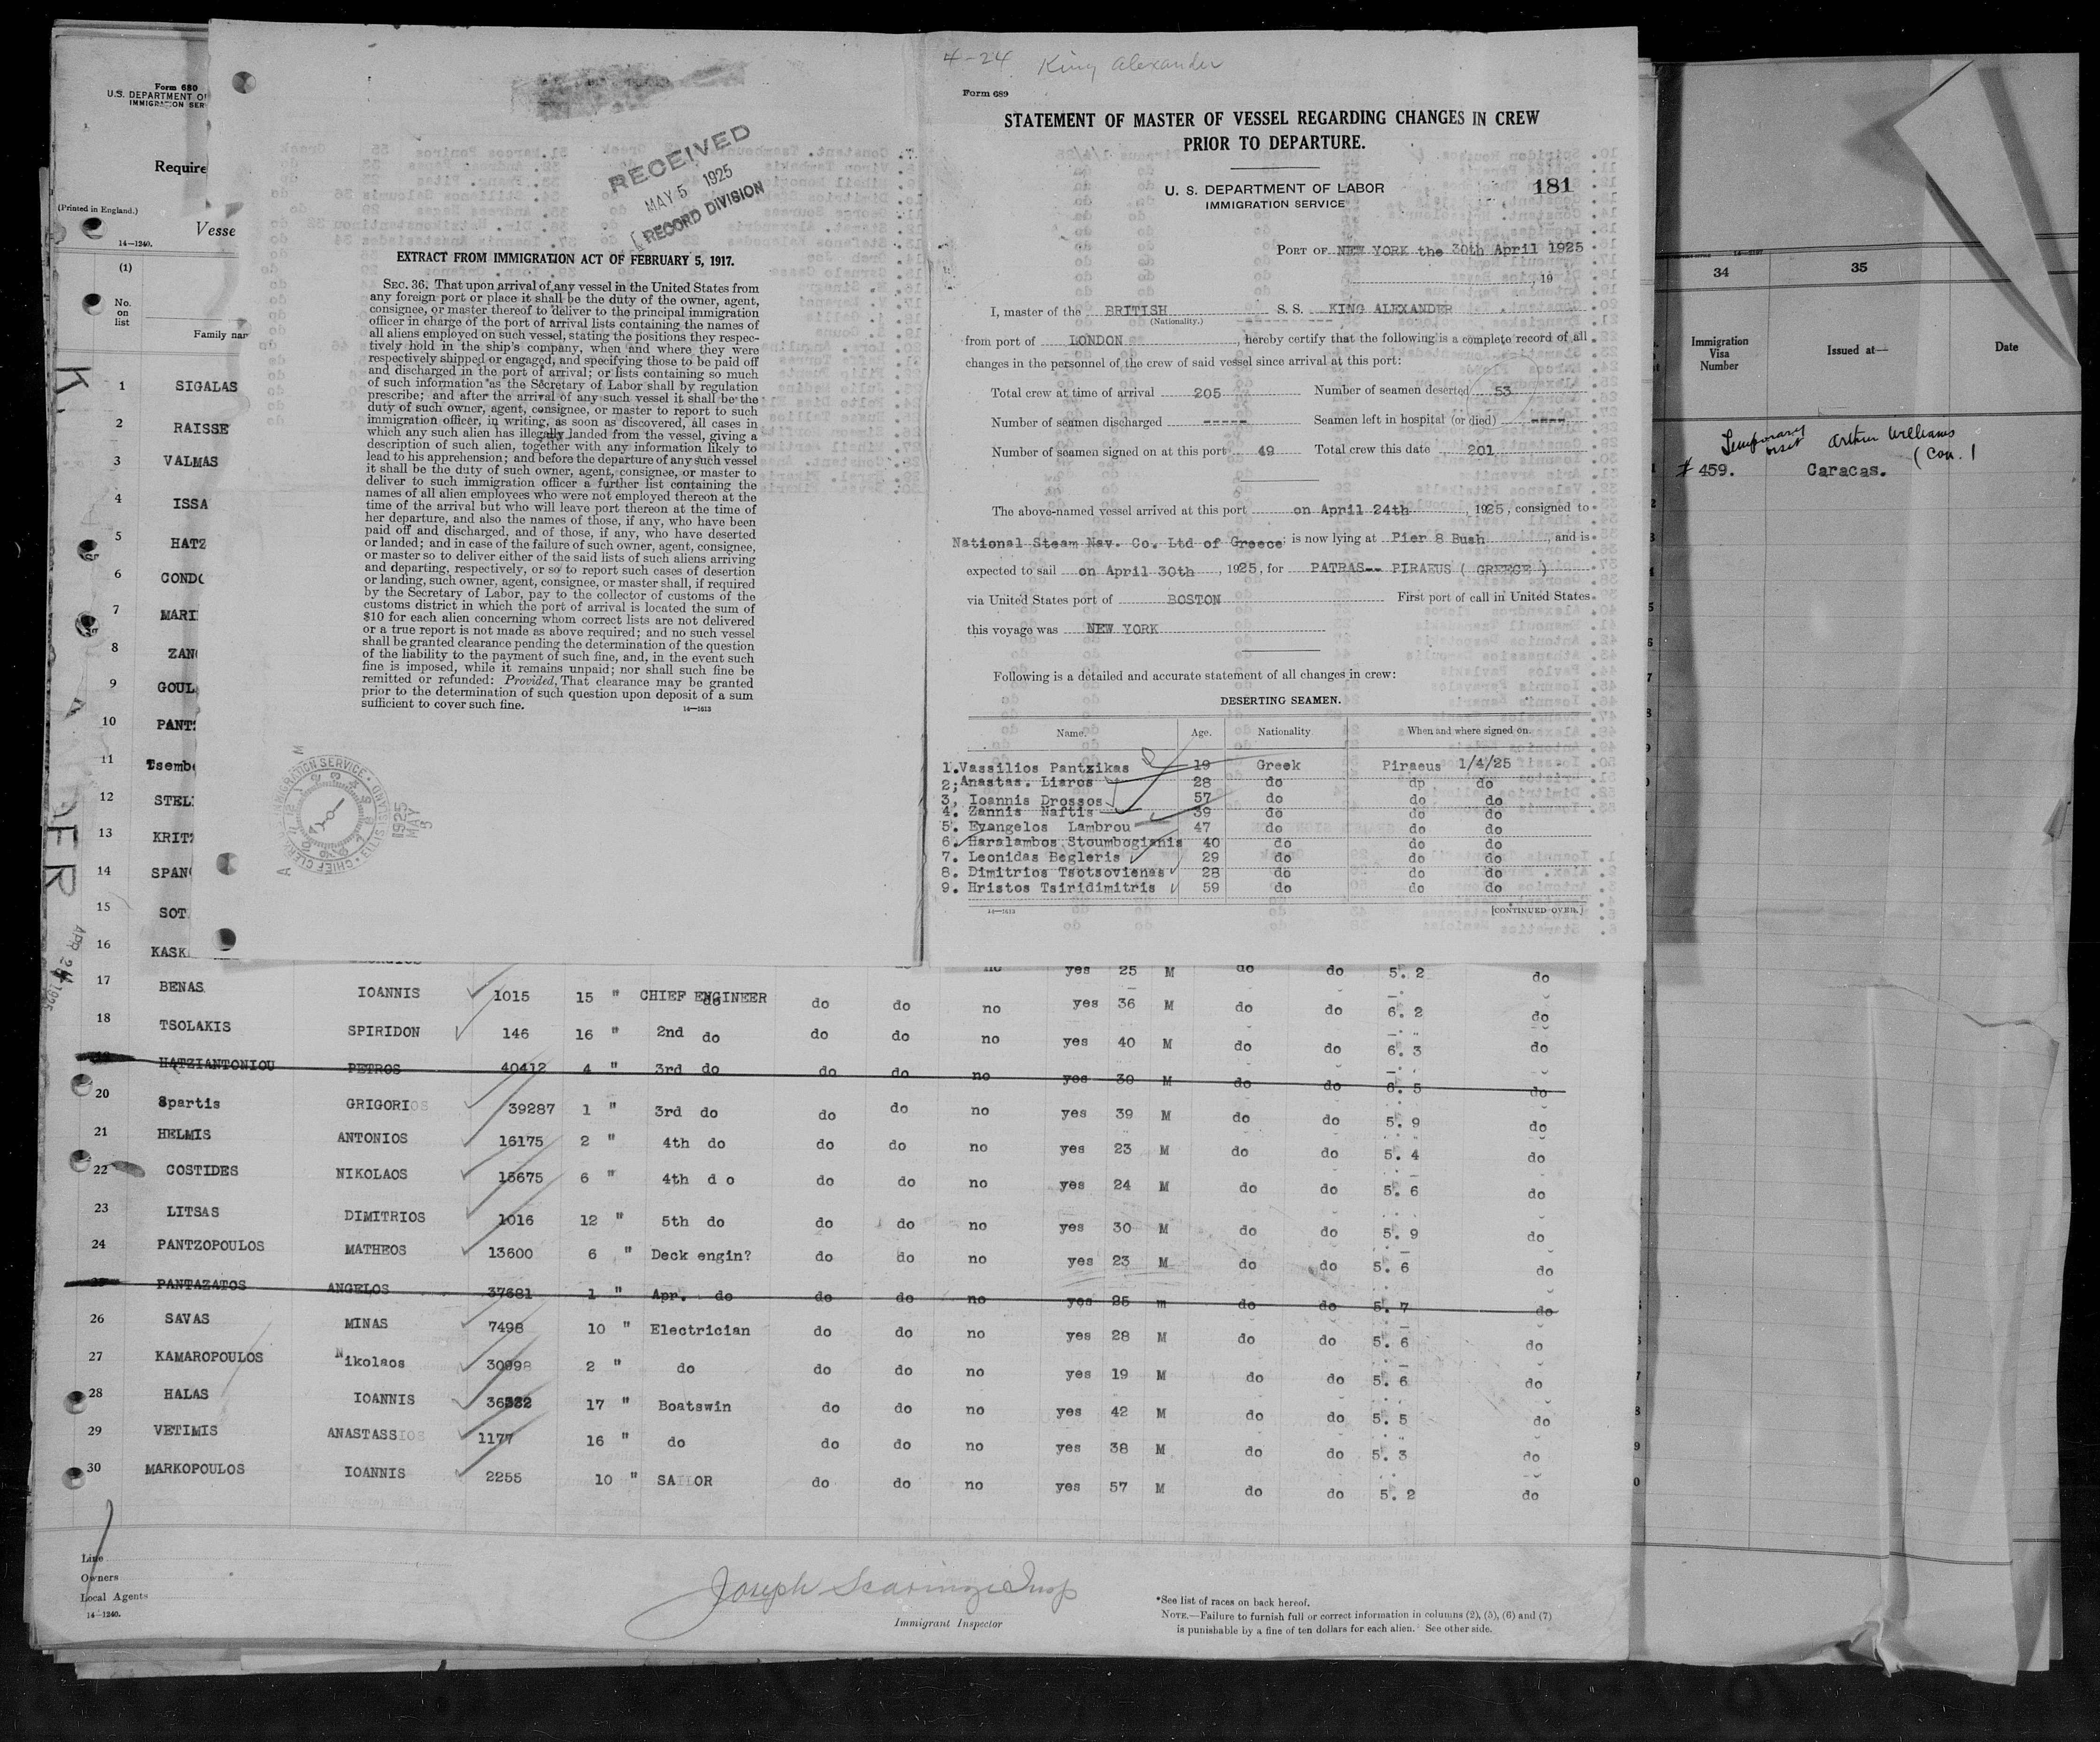 Form 680
U.S. DEPARTMENT O
IMMIGRATION SER
Require
(Printed in England.)
Vesse
14—1240.
(1)
No.
on
list
Family nam
1 SIGALAS
2 RAISSE
3 VALMAS
4 ISSA
5 HATZ
6 COND
7 MARI
8 ZAN
9 GOUL
10 PANT
11 Tsemb
12 STEL
13 KRIT
14 SPAN
15 SOT
16 KASK
RECEIVED
MAY 5 1925
RECORD DIVISION
EXTRACT FROM IMMIGRATION ACT OF FEBRUARY 5, 1917.
SEC. 36. That upon arrival of any vessel in the United States from
any foreign port or place it shall be the duty of the owner, agent,
consignee, or master thereof to deliver to the principal immigration
officer in charge of the port of arrival lists containing the names of
all aliens employed on such vessel, stating the positions they respec-
tively hold in the ship's company, when and where they were
respectively shipped or engaged, and specifying those to be paid off
and discharged in the port of arrival; or lists containing so much
of such information as the Secretary of Labor shall by regulation
prescribe; and after the arrival of any such vessel it shall be the
duty of such owner, agent, consignee, or master to report to such
immigration officer, in writing, as soon as discovered, all cases in
which any such alien has illegally landed from the vessel, giving a
description of such alien, together with any information likely to
lead to his apprehension; and before the departure of any such vessel
it shall be the duty of such owner, agent, consignee, or master to
deliver to such immigration officer a further list containing the
names of all alien employees who were not employed thereon at the
time of the arrival but who will leave port thereon at the time of
her departure, and also the names of those, if any, who have been
paid off and discharged, and of those, if any, who have deserted
or landed; and in case of the failure of such owner, agent, consignee,
or master so to deliver either of the said lists of such aliens arriving
and departing, respectively, or so to report such cases of desertion
or landing, such owner, agent, consignee, or master shall, if required
by the Secretary of Labor, pay to the collector of customs of the
customs district in which the port of arrival is located the sum of
$10 for each alien concerning whom correct lists are not delivered
or a true report is not made as above required; and no such vessel
shall be granted clearance pending the determination of the question
of the liability to the payment of such fine, and, in the event such
fine is imposed, while it remains unpaid; nor shall such fine be
remitted or refunded: Provided, That clearance may be granted
prior to the determination of such question upon deposit of a sum
sufficient to cover such fine.
14—1613
IMMIGRATION SERVICE · ELLIS ISLAND · CHIEF CLERK
1925
MAY
5
4-24 King Alexander
Form 689
STATEMENT OF MASTER OF VESSEL REGARDING CHANGES IN CREW
PRIOR TO DEPARTURE.
U. S. DEPARTMENT OF LABOR
IMMIGRATION SERVICE
181
PORT OF NEW YORK the 30th April 1925
, 19
I, master of the BRITISH S. S. KING ALEXANDER
(Nationality.)
from port of LONDON, hereby certify that the following is a complete record of all
changes in the personnel of the crew of said vessel since arrival at this port:
Total crew at time of arrival 205 Number of seamen deserted 53
Number of seamen discharged ----- Seamen left in hospital (or died) ----
Number of seamen signed on at this port 49 Total crew this date 201
The above-named vessel arrived at this port on April 24th, 1925, consigned to
National Steam Nav. Co. Ltd of Greece; is now lying at Pier 8 Bush, and is
expected to sail on April 30th, 1925, for PATRAS-- PIRAEUS ( GREECE )
via United States port of BOSTON First port of call in United States
this voyage was NEW YORK
Following is a detailed and accurate statement of all changes in crew:
DESERTING SEAMEN.
Name. Age. Nationality When and where signed on.
1. Vassilios Pantzikas 19 Greek Piraeus 1/4/25
2; Anastas. Liaros 28 do dp do
3, Ioannis Drossos 57 do do do
4. Zannis Naftis 39 do do do
5. Evangelos Lambrou 47 do do do
6. Haralambos Stoumbogianis 40 do do do
7. Leonidas Begleris 29 do do do
8. Dimitrios Tsotsovienas 28 do do do
9. Hristos Tsiridimitris 59 do do do
14—1613
[CONTINUED OVER.]
34 35
Immigration
Visa
Number
Issued at—
Date
Temporary
visit
Arthur Williams
(Con.
# 459. Caracas.
no yes 25 M do do 5. 2 do
17 BENAS IOANNIS 1015 15 " CHIEF ENGINEER do do no yes 36 M do do 6. 2 do
18 TSOLAKIS SPIRIDON 146 16 " 2nd do do do no yes 40 M do do 6. 3 do
19 HATZIANTONIOU PETROS 40412 4 " 3rd do do do no yes 30 M do do 6. 5 do
20 Spartis GRIGORIOS 39287 1 " 3rd do do do no yes 39 M do do 5. 9 do
21 HELMIS ANTONIOS 16175 2 " 4th do do do no yes 23 M do do 5. 4 do
22 COSTIDES NIKOLAOS 15675 6 " 4th d o do do no yes 24 M do do 5. 6 do
23 LITSAS DIMITRIOS 1016 12 " 5th do do do no yes 30 M do do 5. 9 do
24 PANTZOPOULOS MATHEOS 13600 6 " Deck engin? do do no yes 23 M do do 5. 6 do
25 PANTAZATOS ANGELOS 37681 1 " Apr. do do do no yes 25 m do do 5. 7 do
26 SAVAS MINAS 7498 10 " Electrician do do no yes 28 M do do 5. 6 do
27 KAMAROPOULOS Nikolaos 30998 2 " do do do no yes 19 M do do 5. 6 do
28 HALAS IOANNIS 17 " Boatswin do do no yes 42 M do do 5. 5 do
29 VETIMIS ANASTASSIOS 1177 16 " do do do no yes 38 M do do 5. 3 do
30 MARKOPOULOS IOANNIS 2255 10 " SAILOR do do no yes 57 M do do 5. 2 do
Line
Owners
Local Agents
14—1240.
Immigrant Inspector
*See list of races on back hereof.
NOTE.—Failure to furnish full or correct information in columns (2), (5), (6) and (7)
is punishable by a fine of ten dollars for each alien. See other side.
K.
DER
APR 24 1925